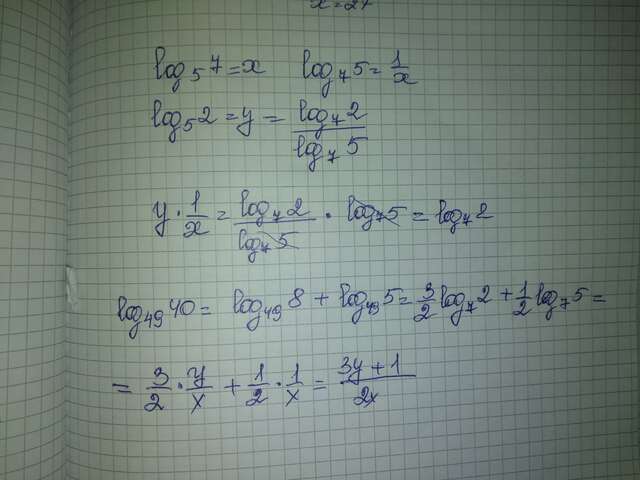 x=27
log₅7=x log₇5=1/x
log₅2=y=log₇2/log₇5
y·1/x=log₇2/log₇5·log₇5=log₇2
log₄₉40=log₄₉8+log₄₉5=3/2log₇2+1/2log₇5=
=3/2·y/x+1/2·1/x=3y+1/2x